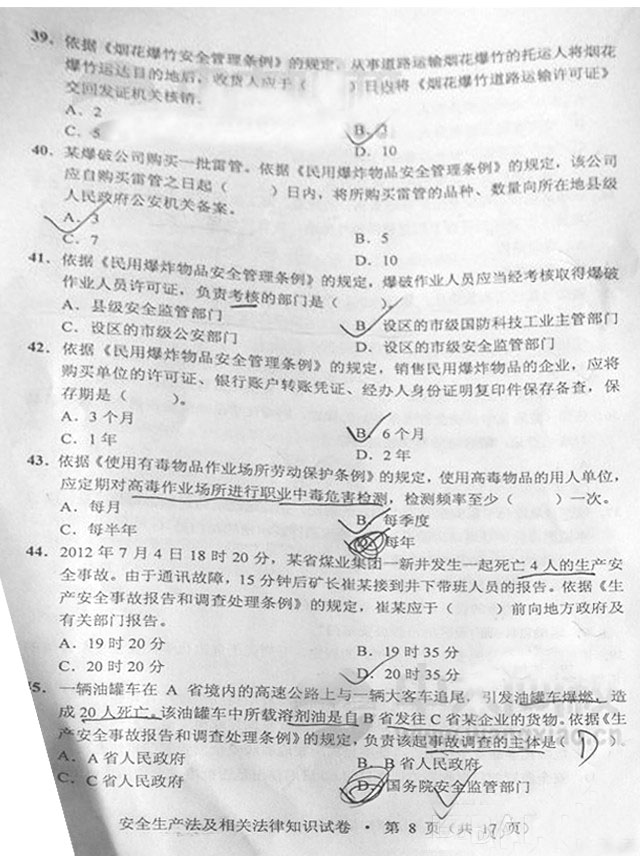 39. 依据《烟花爆竹安全管理条例》的规定, 从事道路运输烟花爆竹的托运人将烟花
爆竹运达目的地后, 收货人应于（　　）日内将《烟花爆竹道路运输许可证》
交回发证机关核销。
A. 2
B. 3
C. 5
D. 10
40. 某爆破公司购买一批雷管。依据《民用爆炸物品安全管理条例》的规定, 该公司
应自购买雷管之日起（　　）日内, 将所购买雷管的品种、数量向所在地县级
人民政府公安机关备案。
A. 3
B. 5
C. 7
D. 10
41. 依据《民用爆炸物品安全管理条例》的规定, 爆破作业人员应当经考核取得爆破
作业人员许可证, 负责考核的部门是（　　）。
A. 县级安全监管部门
B. 设区的市级国防科技工业主管部门
C. 设区的市级公安部门
D. 设区的市级安全监管部门
42. 依据《民用爆炸物品安全管理条例》的规定, 销售民用爆炸物品的企业, 应将
购买单位的许可证、银行账户转账凭证、经办人身份证明复印件保存备查, 保
存期是（　　）。
A. 3 个月
B. 6 个月
C. 1 年
D. 2 年
43. 依据《使用有毒物品作业场所劳动保护条例》的规定, 使用高毒物品的用人单位,
应定期对高毒作业场所进行职业中毒危害检测, 检测频率至少（　　）一次。
A. 每月
B. 每季度
C. 每半年
D. 每年
44. 2012 年 7 月 4 日 18 时 20 分, 某省煤业集团一新井发生一起死亡 4 人的生产安
全事故。由于通讯故障, 15 分钟后矿长崔某接到井下带班人员的报告。依据《生
产安全事故报告和调查处理条例》的规定, 崔某应于（　　）前向地方政府及
有关部门报告。
A. 19 时 20 分
B. 19 时 35 分
C. 20 时 20 分
D. 20 时 35 分
5. 一辆油罐车在 A 省境内的高速公路上与一辆大客车追尾, 引发油罐车爆燃, 造
成 20 人死亡。该油罐车中所载溶剂油是自 B 省发往 C 省某企业的货物。依据《生
产安全事故报告和调查处理条例》的规定, 负责该起事故调查的主体是（ D ）
A. A 省人民政府
B. B 省人民政府
C. C 省人民政府
D. 国务院安全监管部门
安全生产法及相关法律知识试卷 · 第 8 页（共 17 页）